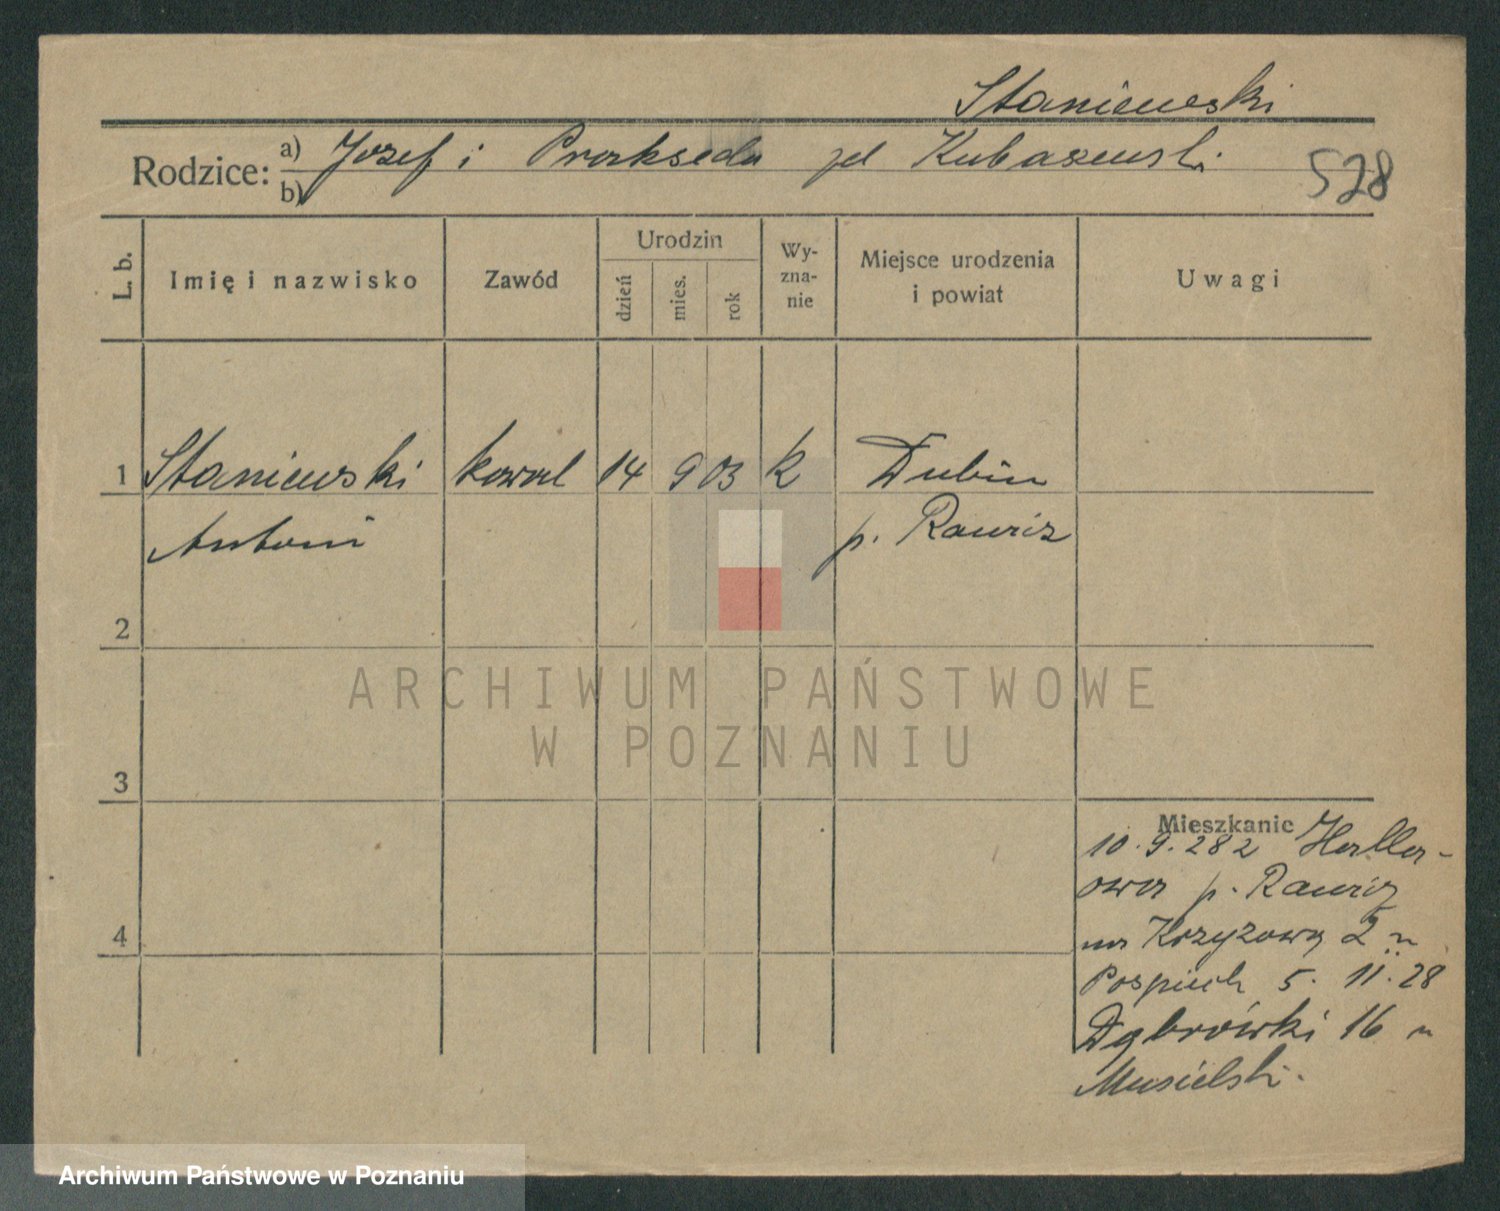 Staniewski
Rodzice: a) Józef i Prakseda zd Kubaszewski
b)
528
L. b. Imię i nazwisko Zawód Urodzin dzień mies. rok Wyznanie Miejsce urodzenia i powiat Uwagi
1 Staniewski kowal 14 9 03 k Dubin
Antoni p. Rawicz
2
3
4
Mieszkanie
10.9.28 z Haller-
owa p. Rawicz
na Krzyzową 2 u
Pospiech 5. 11. 28
Dąbrówki 16 u
Musielski.
ARCHIWUM PAŃSTWOWE
W POZNANIU
Archiwum Państwowe w Poznaniu